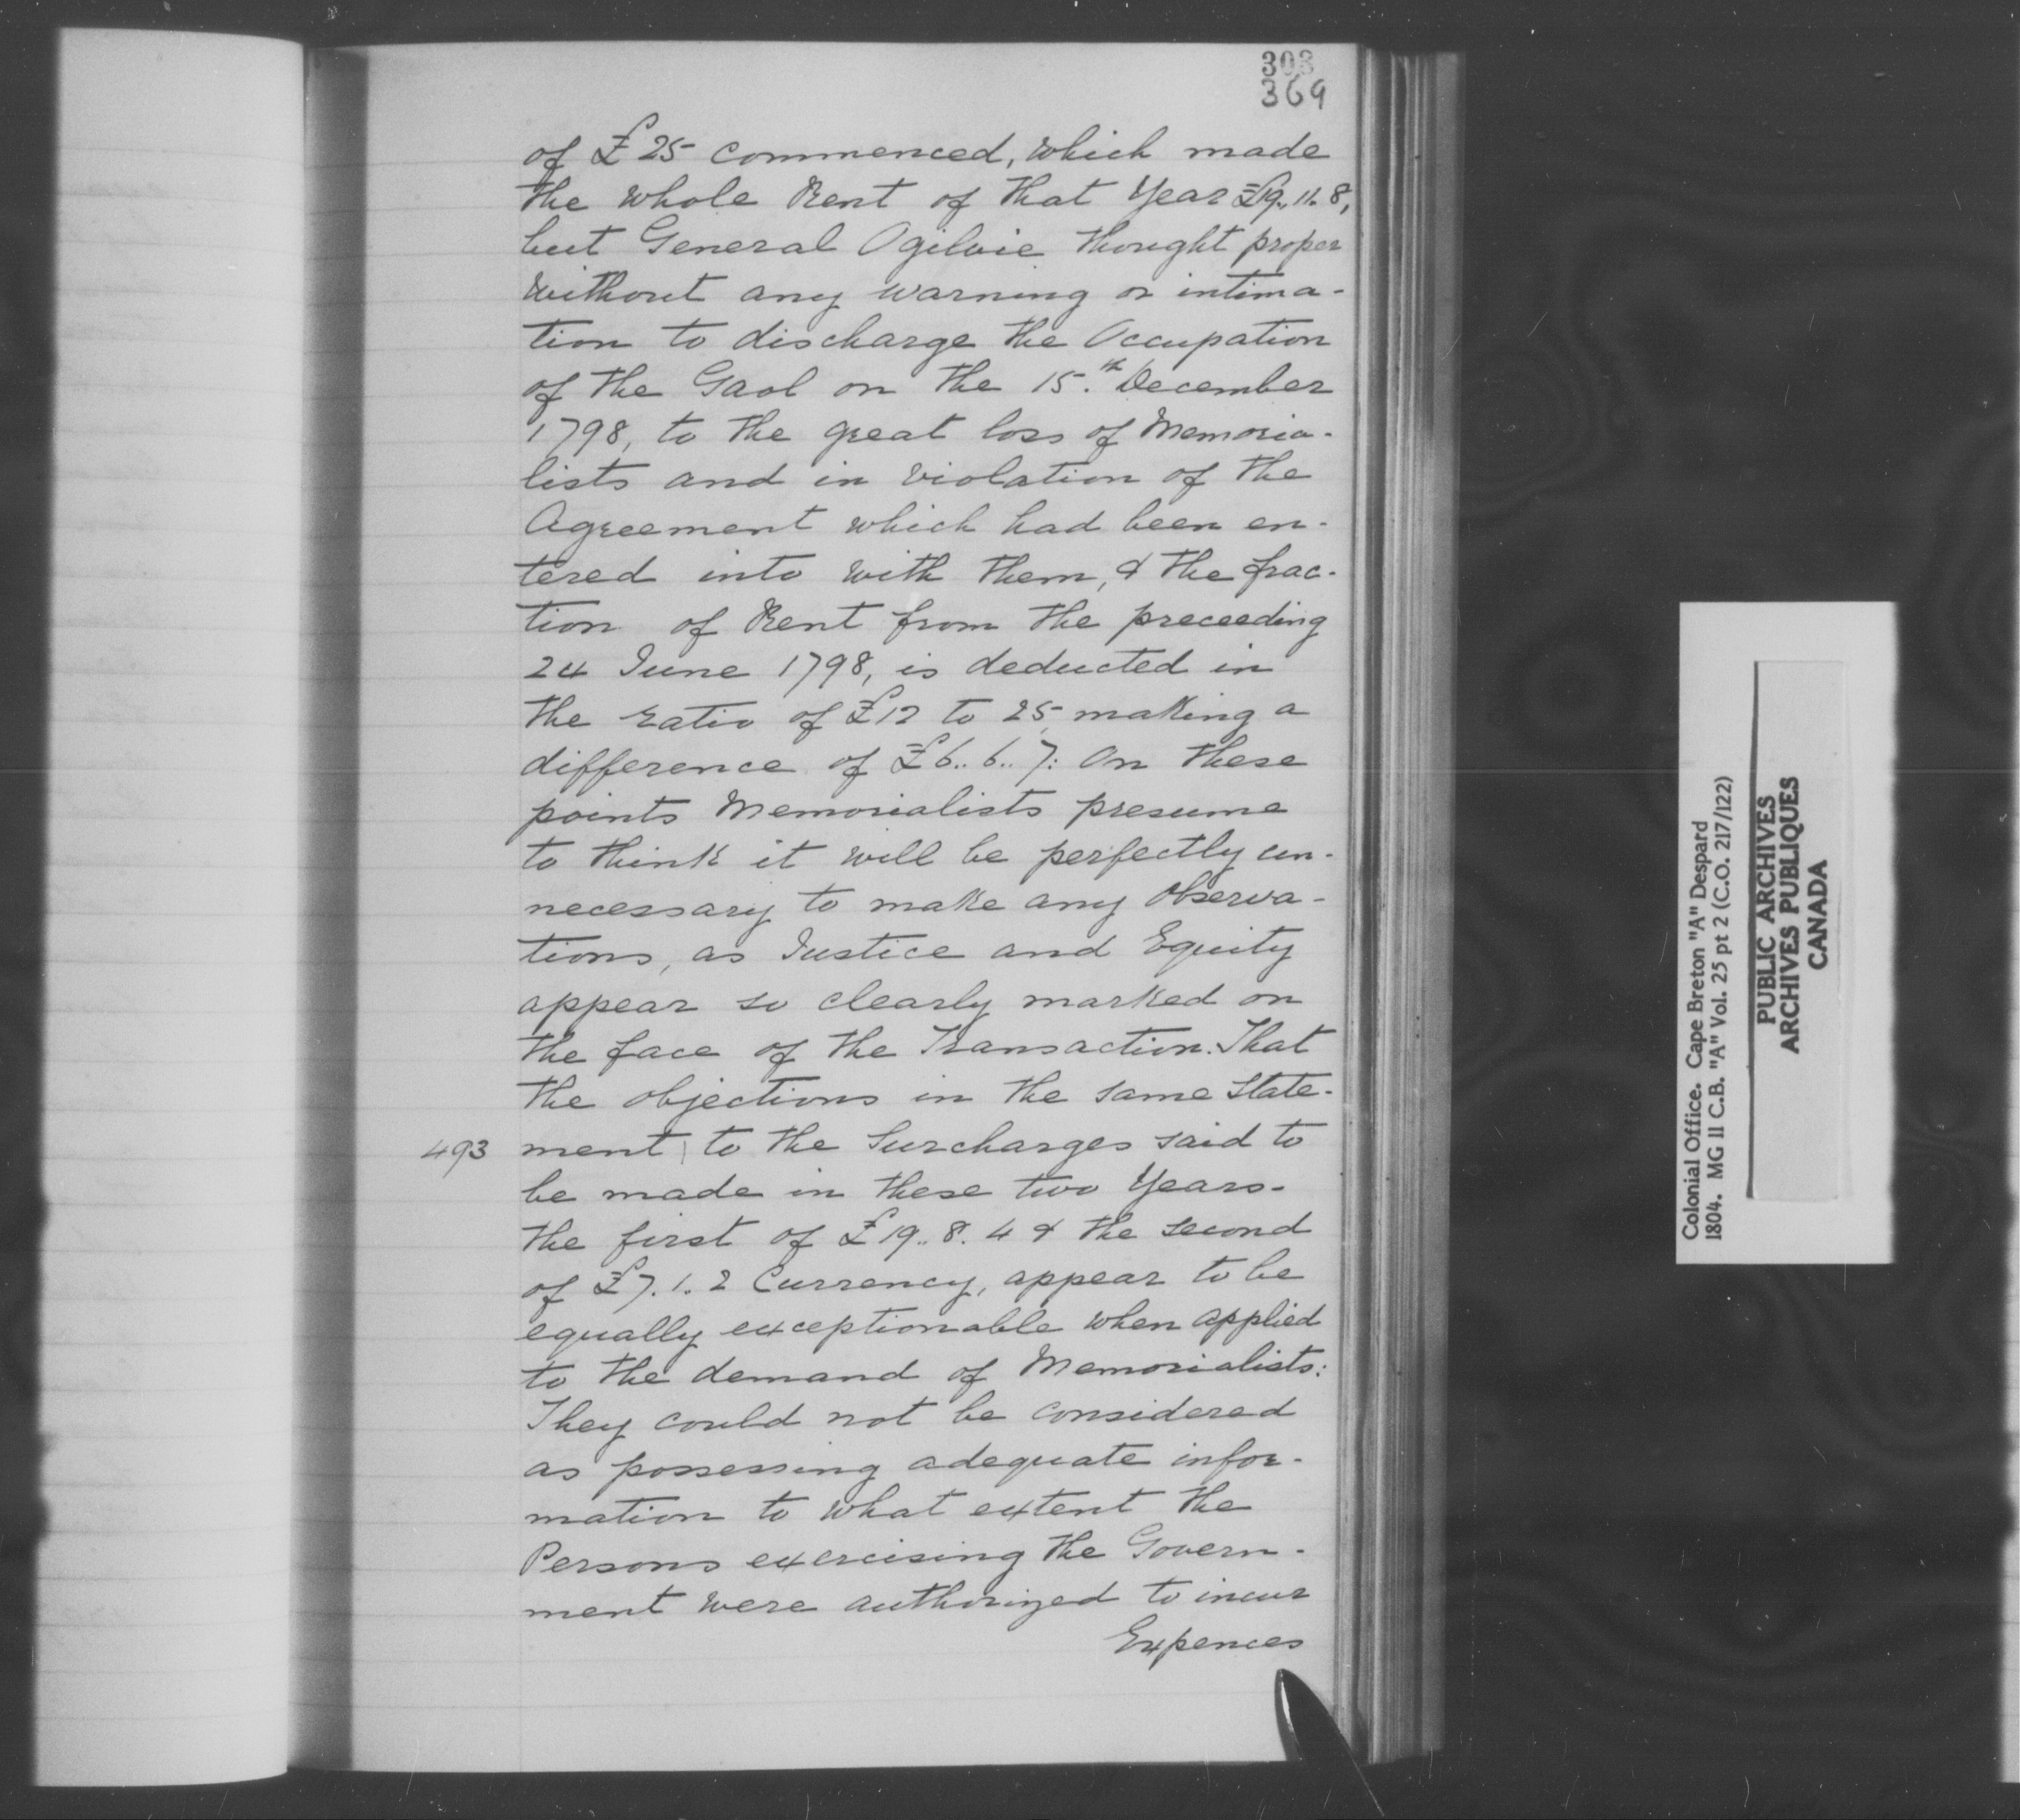 303
369
of £25 commenced, which made
the whole Rent of that Year £19.. 11. 8,
but General Ogilvie thought proper
without any warning or intima-
tion to discharge the Occupation
of the Gaol on the 15.th December
1798, to the great loss of Memoria-
lists and in violation of the
Agreement which had been en-
tered into with them, & the frac-
tion of Rent from the preceeding
24 June 1798, is deducted in
the ratio of £12 to 25, making a
difference of £6.. 6.. 7: On these
points Memorialists presume
to think it will be perfectly un-
necessary to make any Observa-
tions, as Justice and Equity
appear so clearly marked on
the face of the Transaction. That
the objections in the same State-
493 ment | to the Surcharges said to
be made in these two Years-
the first of £19.. 8. 4 & the second
of £7. 1. 2 Currency, appear to be
equally exceptionable when applied
to the demand of Memorialists:
They could not be considered
as possessing adequate infor-
mation to what extent the
Persons exercising the Govern-
ment were authorized to incur
Expences
Colonial Office. Cape Breton "A" Despard
1804. MG 11 C.B. "A" Vol. 25 pt 2 (C.O. 217/122)
PUBLIC ARCHIVES
ARCHIVES PUBLIQUES
CANADA